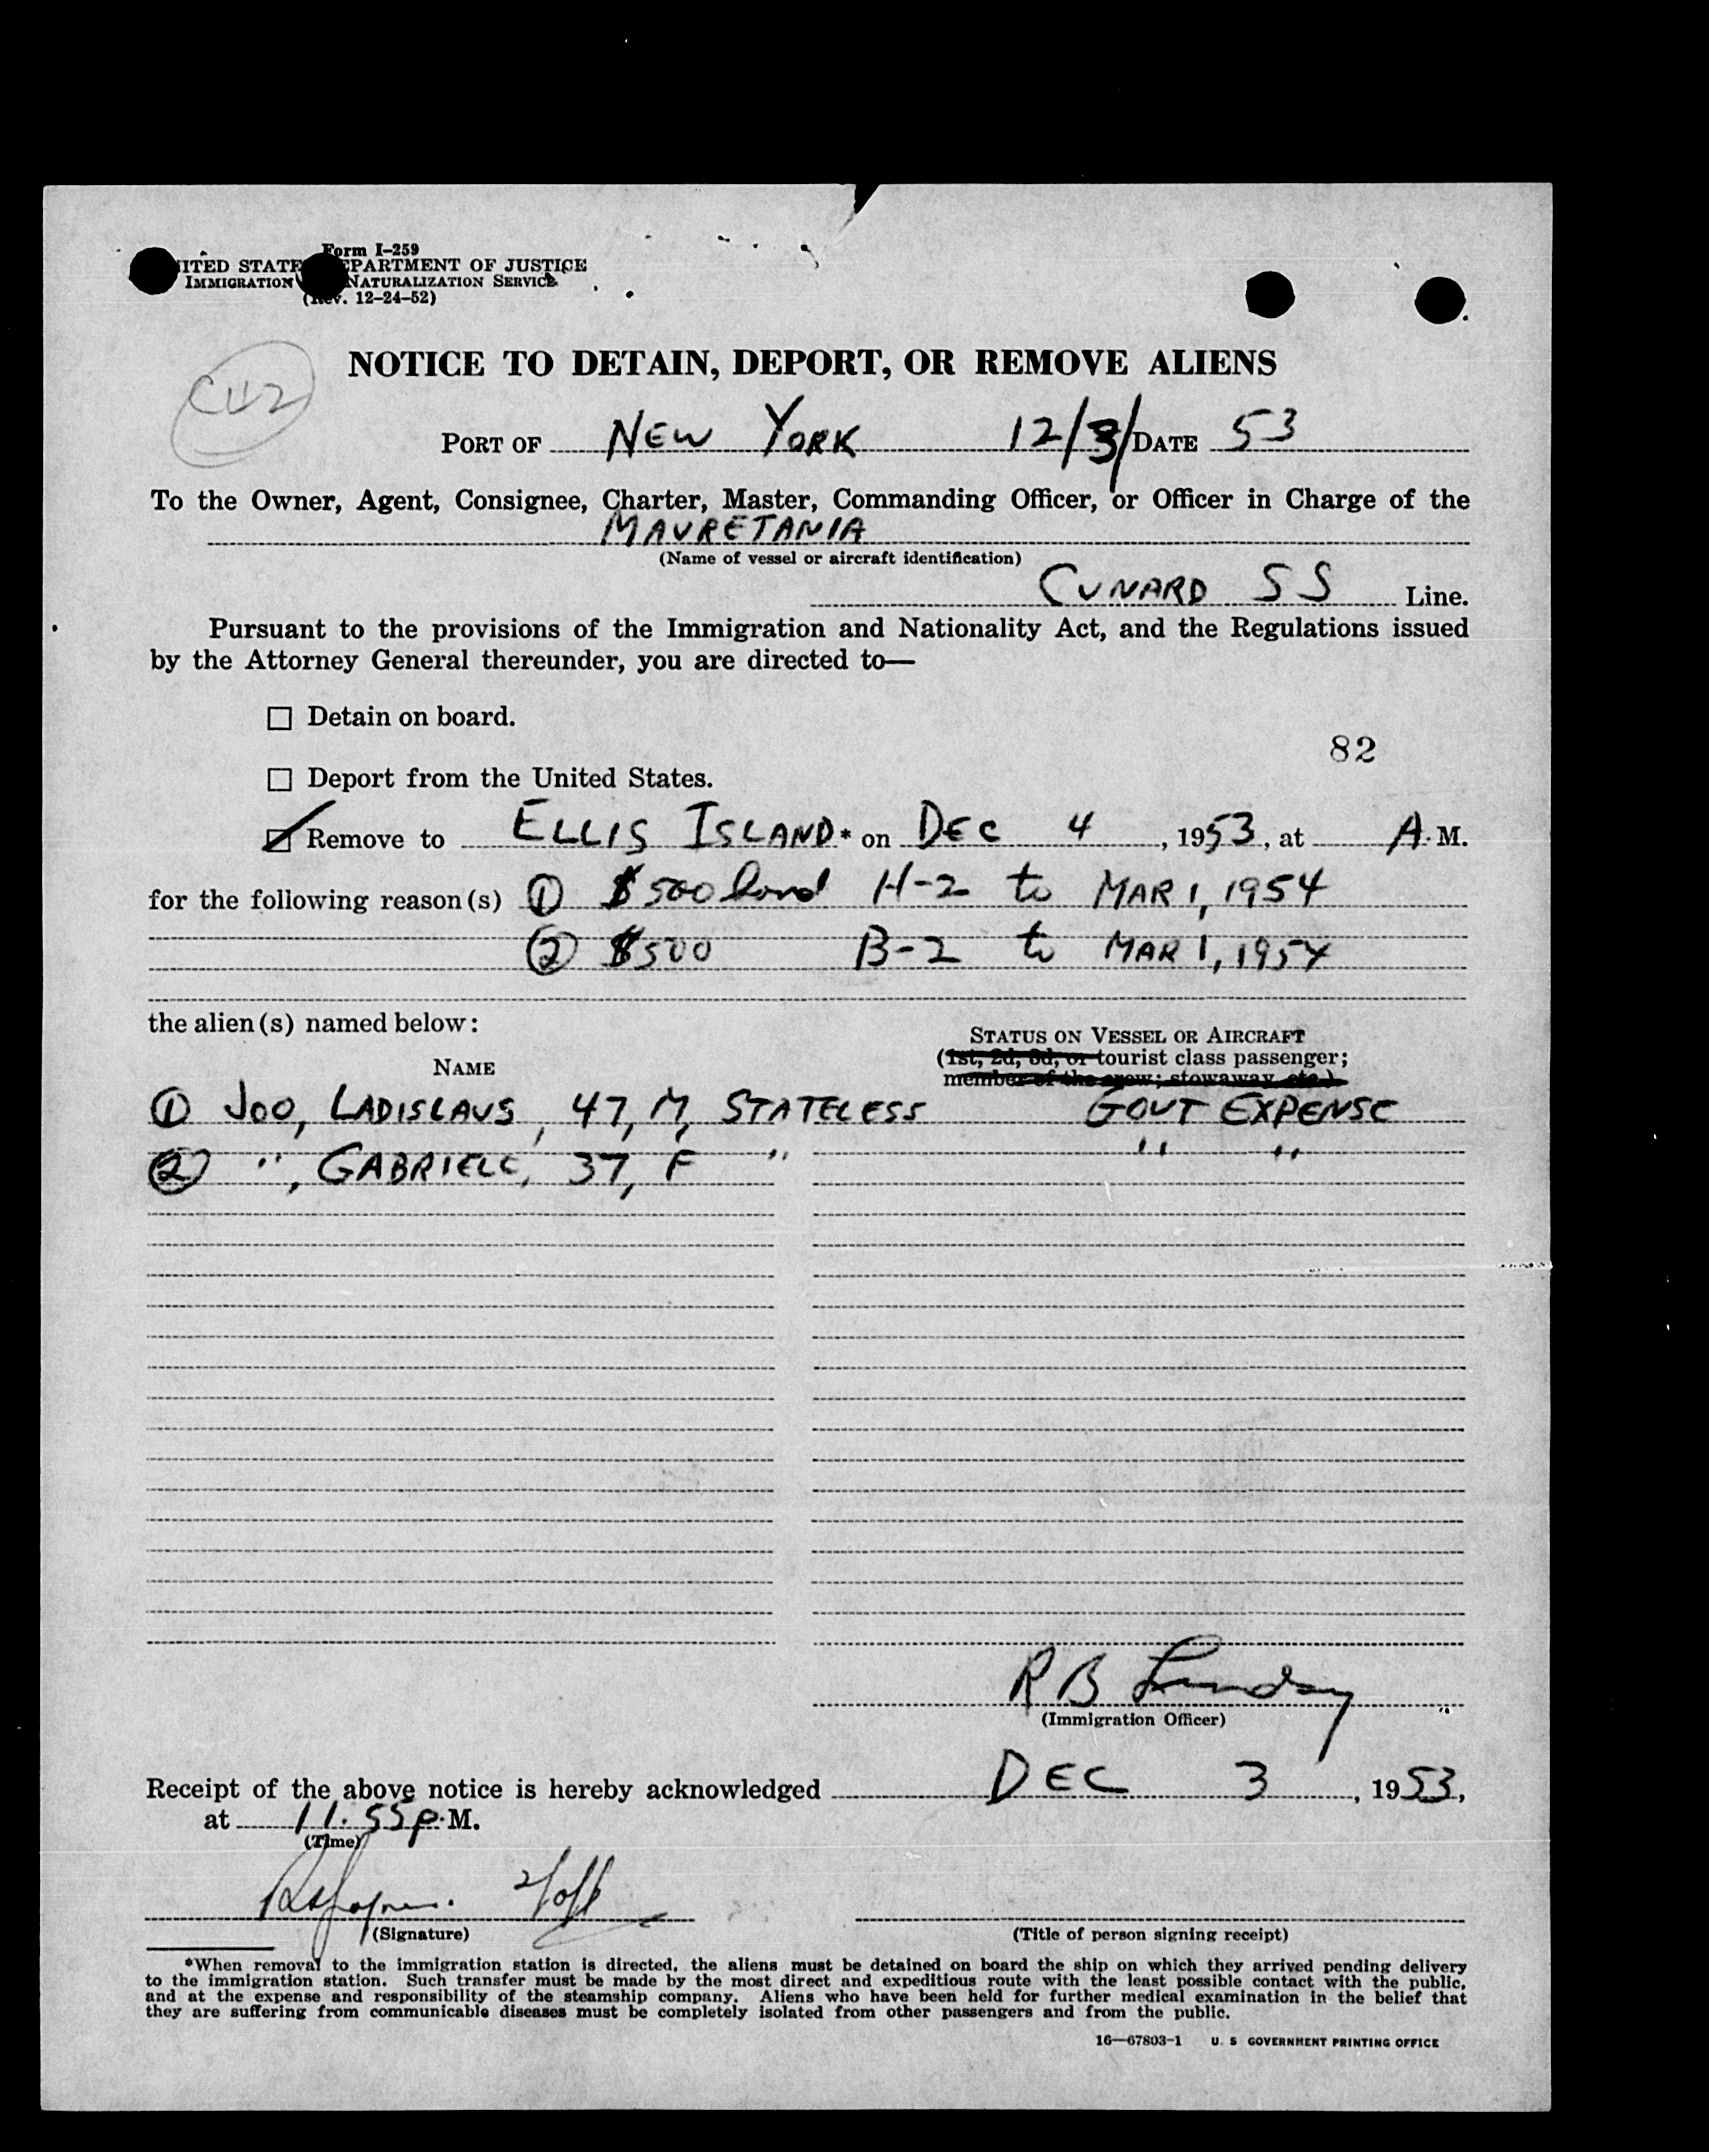 Form I-259
ITED STATE EPARTMENT OF JUSTICE
IMMIGRATION NATURALIZATION SERVICE
(Rev. 12-24-52)
CU2
NOTICE TO DETAIN, DEPORT, OR REMOVE ALIENS
PORT OF NEW YORK 12/3/ DATE 53
To the Owner, Agent, Consignee, Charter, Master, Commanding Officer, or Officer in Charge of the
MAURETANIA
(Name of vessel or aircraft identification)
CUNARD SS Line.
Pursuant to the provisions of the Immigration and Nationality Act, and the Regulations issued
by the Attorney General thereunder, you are directed to—
☐ Detain on board.
82
☐ Deport from the United States.
☑ Remove to ELLIS ISLAND* on DEC 4, 1953, at A. M.
for the following reason(s) ① $500 bond H-2 to MAR 1, 1954
② $500 B-2 to MAR 1, 1954
the alien(s) named below:
STATUS ON VESSEL OR AIRCRAFT
(1st, 2d, 3d, or tourist class passenger;
NAME
member of the crew; stowaway, etc.)
① JOO, LADISLAUS, 47, M, STATELESS GOVT EXPENSE
② ", GABRIELE, 37, F " " "
R B Lindsay
(Immigration Officer)
Receipt of the above notice is hereby acknowledged DEC 3, 1953,
at 11.55 P. M.
(Time)
(Signature) (Title of person signing receipt)
*When removal to the immigration station is directed, the aliens must be detained on board the ship on which they arrived pending delivery
to the immigration station. Such transfer must be made by the most direct and expeditious route with the least possible contact with the public,
and at the expense and responsibility of the steamship company. Aliens who have been held for further medical examination in the belief that
they are suffering from communicable diseases must be completely isolated from other passengers and from the public.
16—67803-1 U. S GOVERNMENT PRINTING OFFICE